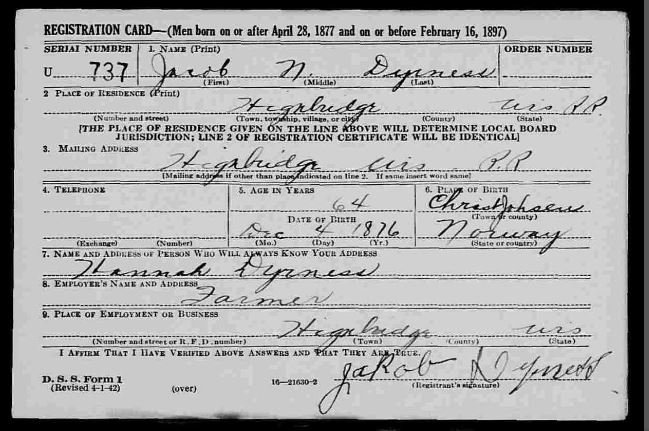 REGISTRATION CARD—(Men born on or after April 28, 1877 and on or before February 16, 1897)
SERIAL NUMBER 1. NAME (Print) ORDER NUMBER
U 737 Jacob N. Dyrness
(First) (Middle) (Last)
2 PLACE OF RESIDENCE (Print)
Highbridge Wis R.R.
(Number and street) (Town, township, village, or city) (County) (State)
[THE PLACE OF RESIDENCE GIVEN ON THE LINE ABOVE WILL DETERMINE LOCAL BOARD
JURISDICTION; LINE 2 OF REGISTRATION CERTIFICATE WILL BE IDENTICAL]
3. MAILING ADDRESS
Highbridge Wis R.R
[Mailing address if other than place indicated on line 2. If same insert word same]
4. TELEPHONE 5. AGE IN YEARS 6. PLACE OF BIRTH
64 Christjohsen
DATE OF BIRTH (Town or county)
Dec 4 1876 Norway
(Exchange) (Number) (Mo.) (Day) (Yr.) (State or country)
7. NAME AND ADDRESS OF PERSON WHO WILL ALWAYS KNOW YOUR ADDRESS
Hannah Dyrness
8. EMPLOYER'S NAME AND ADDRESS
Farmer
9. PLACE OF EMPLOYMENT OR BUSINESS
Highbridge Wis
(Number and street or R. F. D. number) (Town) (County) (State)
I AFFIRM THAT I HAVE VERIFIED ABOVE ANSWERS AND THAT THEY ARE TRUE.
Jakob Dyrness
D. S. S. Form 1
(Revised 4-1-42) (over) 16—21630-2 (Registrant's signature)